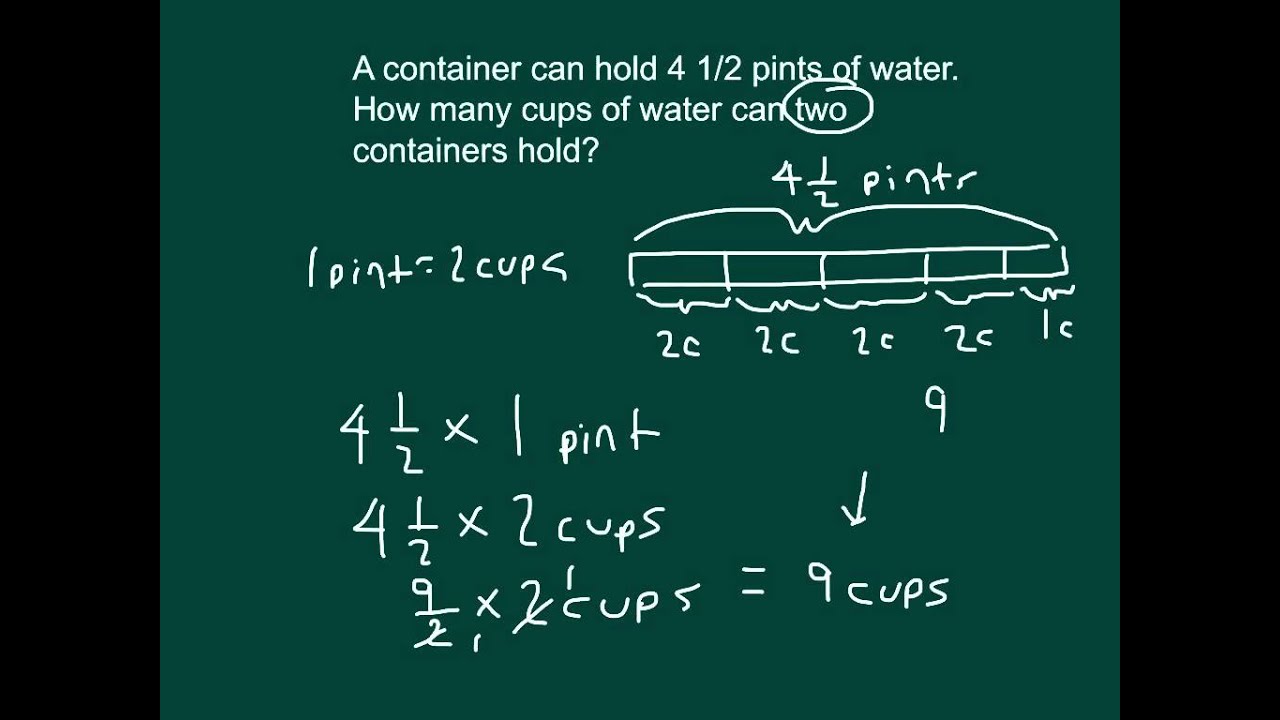 A container can hold 4 1/2 pints of water.
How many cups of water can two
containers hold?
4 1/2 pints
1 pint = 2 cups
2c 2c 2c 2c 1c
9
4 1/2 x 1 pint
4 1/2 x 2 cups
9/2 1 x 2 1 cups = 9 cups